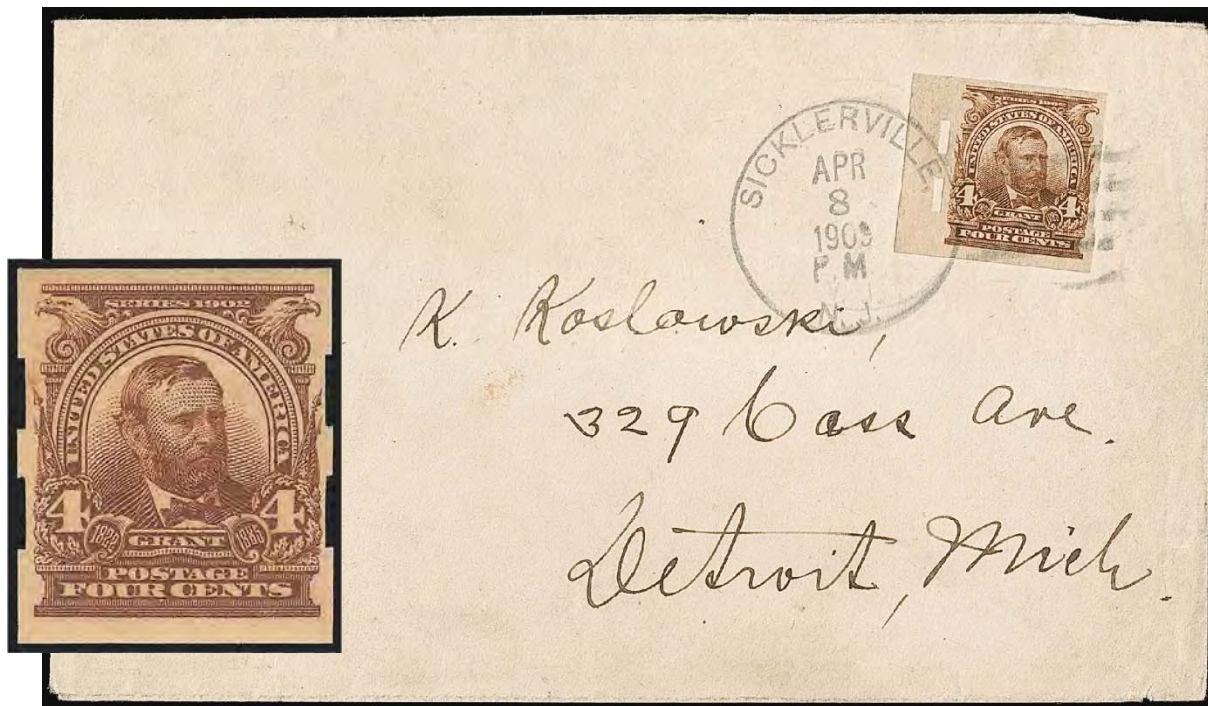 SICKLERVILLE,
APR
8
1909
P M
N.J.
SERIES 1902
UNITED STATES OF AMERICA
4 4
GRANT
POSTAGE
FOUR CENTS
K. Koslowski,
329 Cass Ave.
Detroit, Mich.
SERIES 1902
UNITED STATES OF AMERICA
4 4
1822 GRANT 1885
POSTAGE
FOUR CENTS